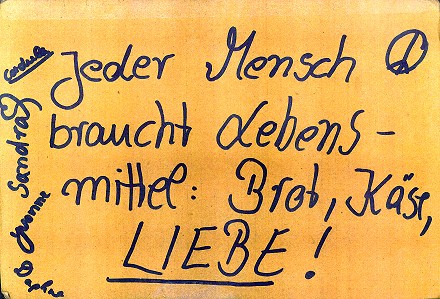 Jeder Mensch
braucht Lebens-
mittel: Brot, Käse,
LIEBE!
Cordula
Sandra
Yvonne
Daphne